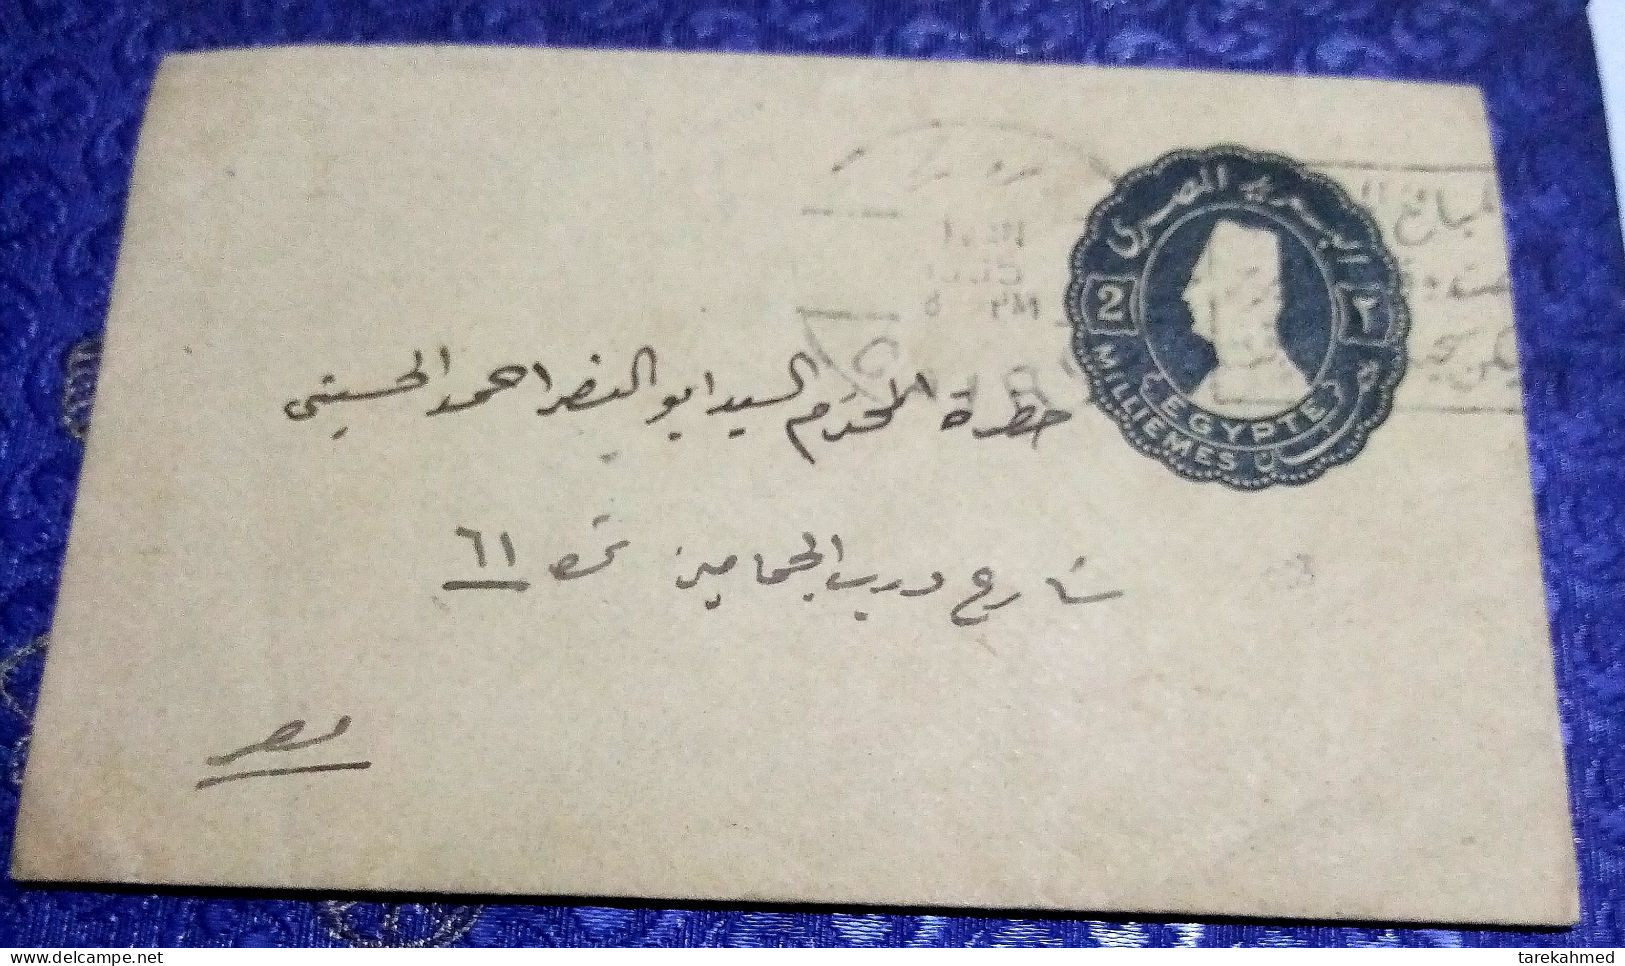 البريد المصري
2 ٢
MILLIEMES
EGYPTE
PM
حضرة المحترم السيد ابو النصر احمد الحسيني
شارع درب الجماميز نمرة ٦١
مصر
delcampe.net
tarekahmed